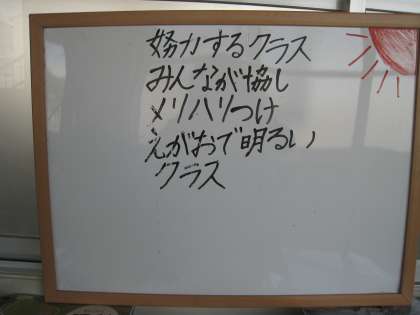 努力するクラス
みんなが協し
メリハリつけ
えがおで明るい
クラス